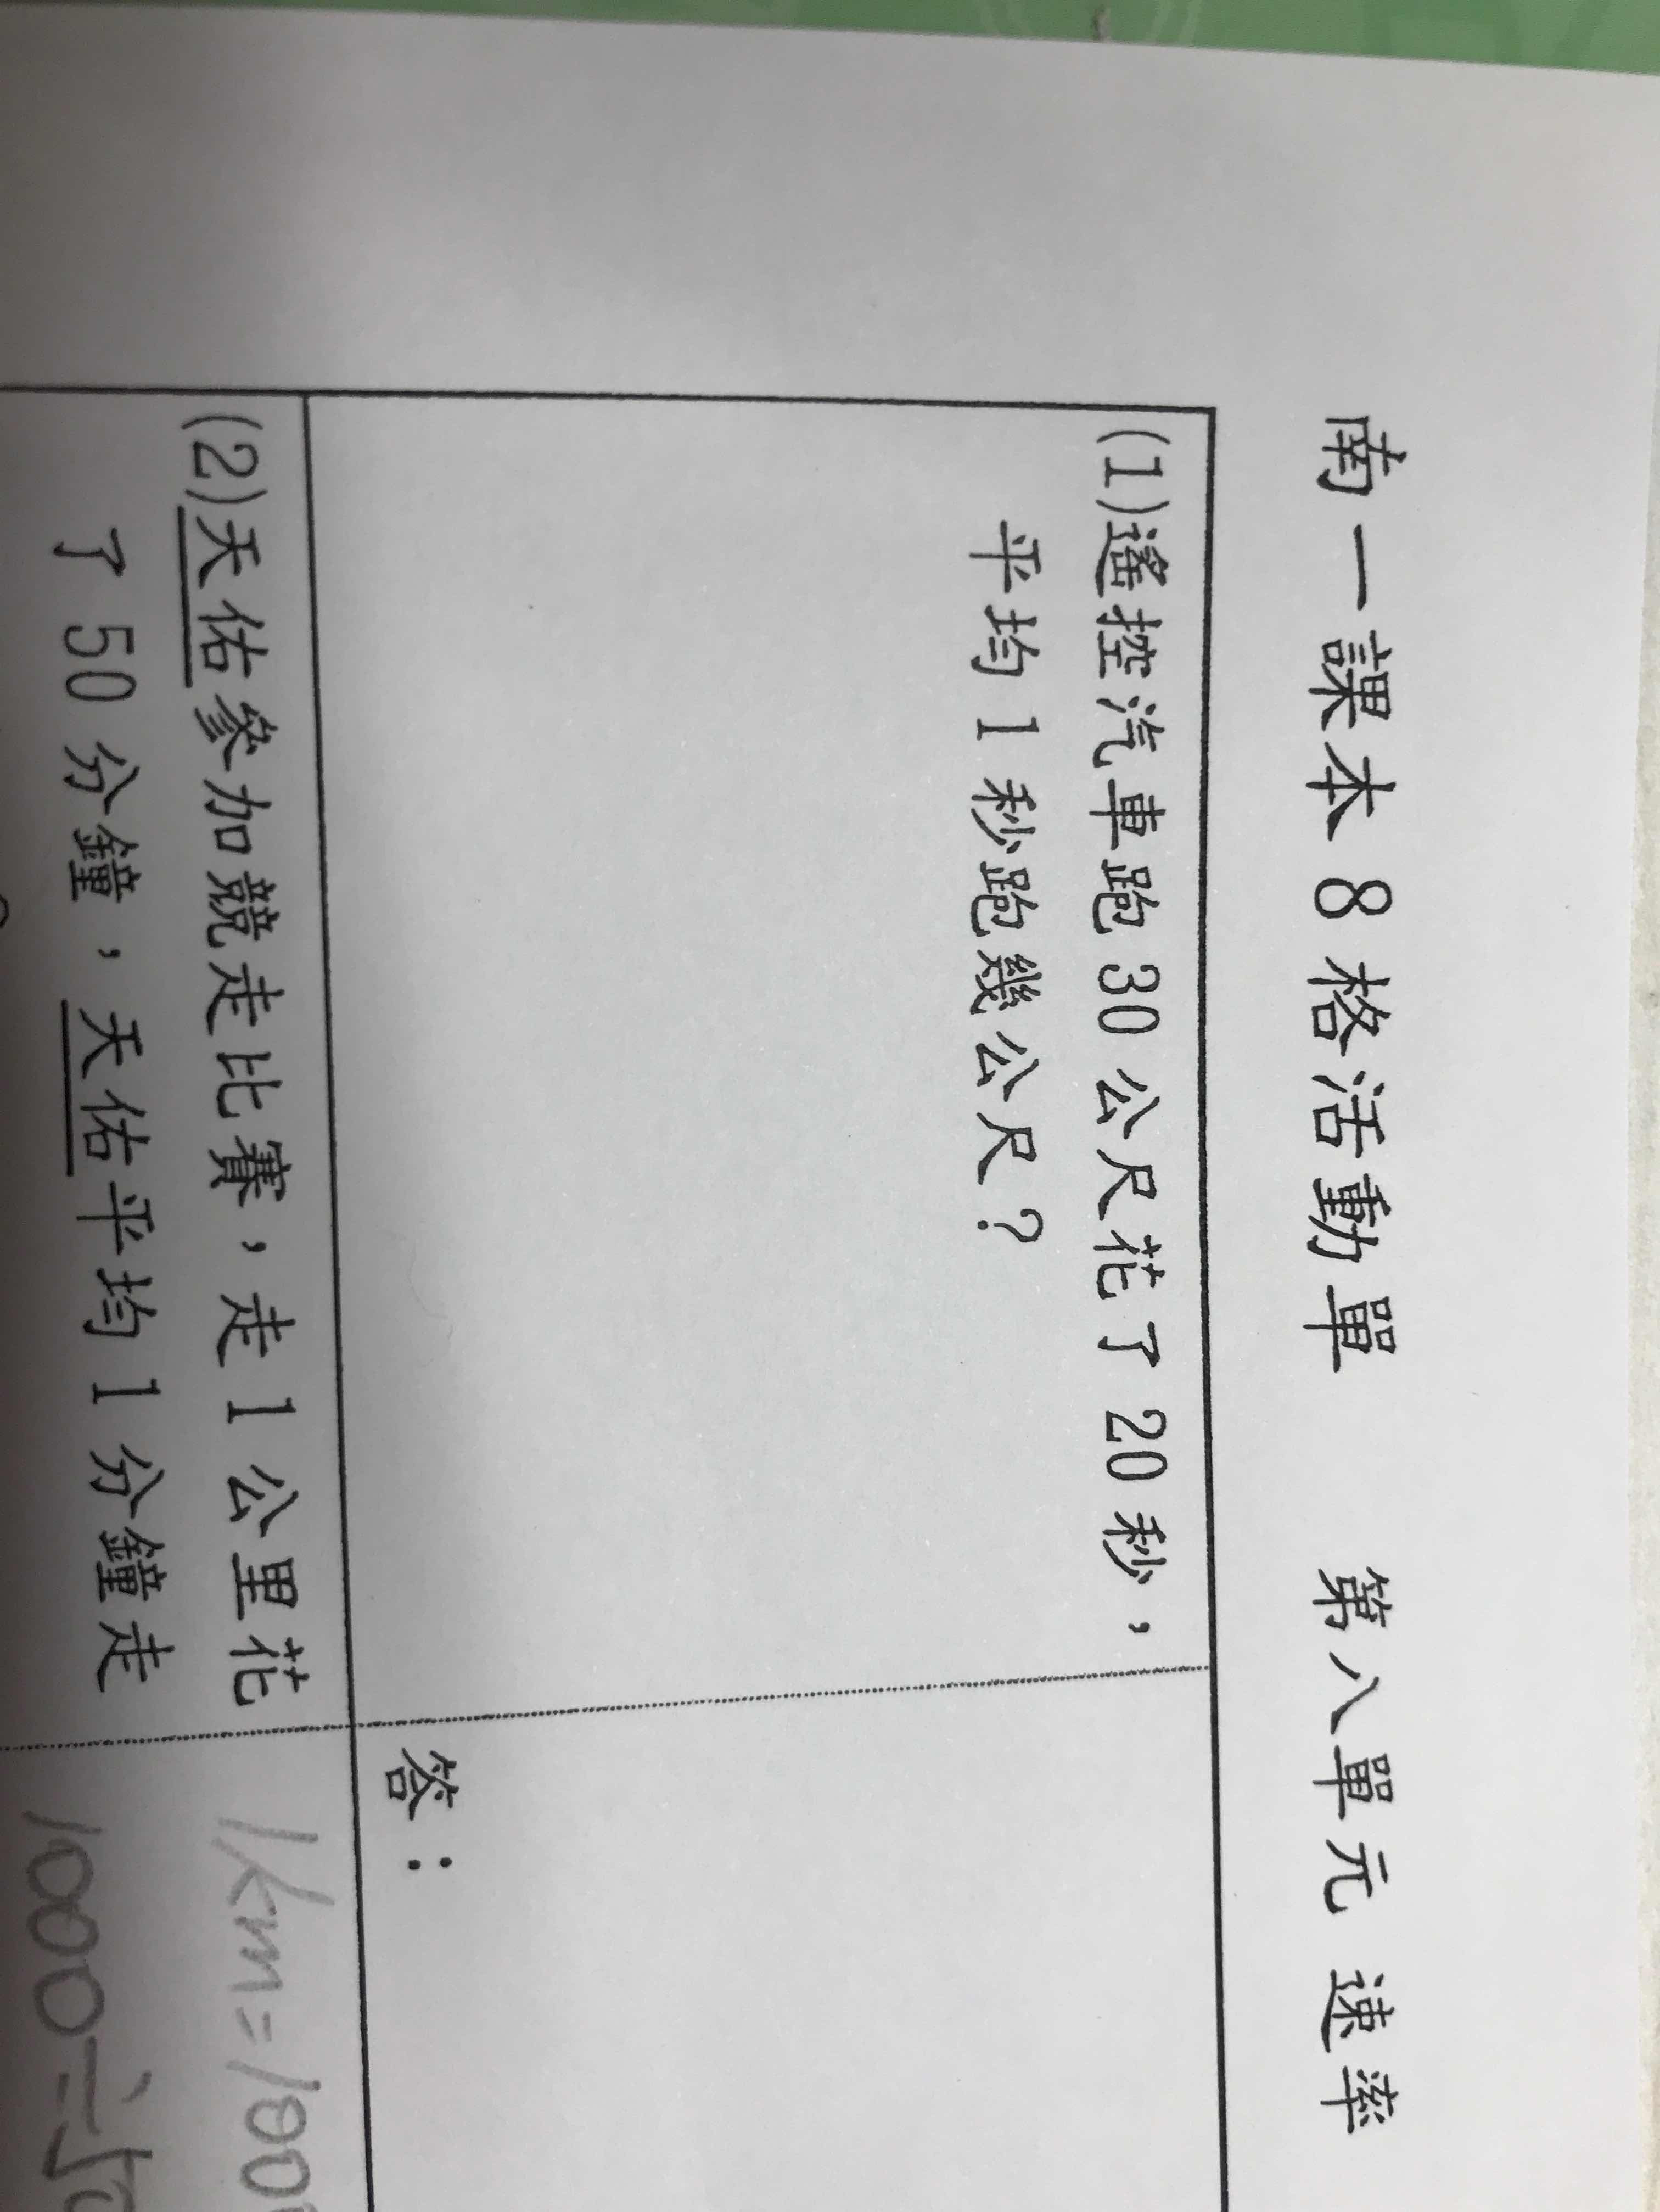 南一課本 8 格活動單 第八單元 速率
(1)遙控汽車跑 30 公尺花了 20 秒，
平均 1 秒跑幾公尺？
答：
(2)天佑參加競走比賽，走 1 公里花
了 50 分鐘，天佑平均 1 分鐘走
1km=100
1000÷5